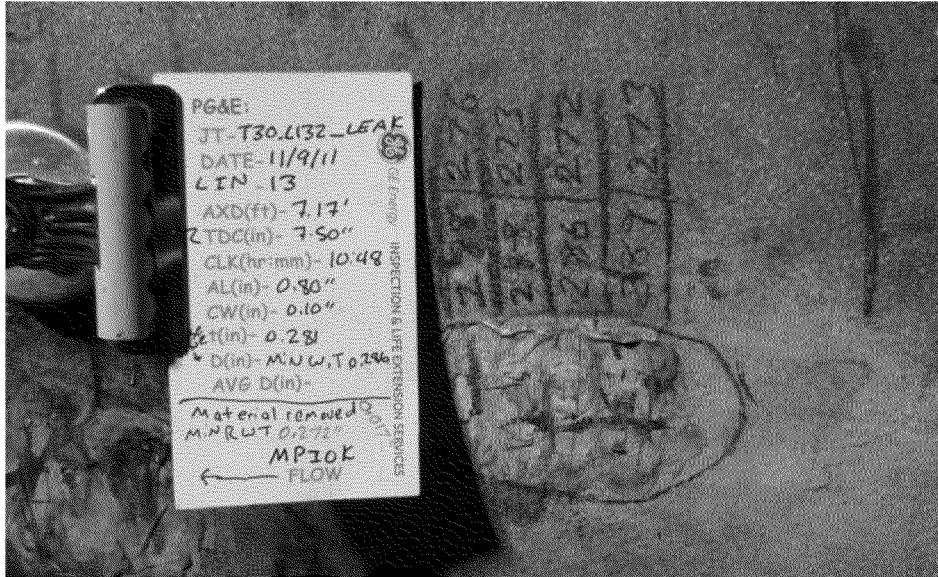 PG&E:
JT- T30.L132_LEAK
DATE- 11/9/11
LIN - 13
AXD(ft)- 7.17'
TDC(in)- 7.50"
CLK(hr:mm)- 10:48
AL(in)- 0.80"
CW(in)- 0.10"
t(in)- 0.281
D(in)- MIN W.T 0.286
AVG D(in)-
Material removed
MINRWT 0.272"
MPIOK
← FLOW
INSPECTION & LIFE EXTENSION SERVICES
276
273
272
273
288
286